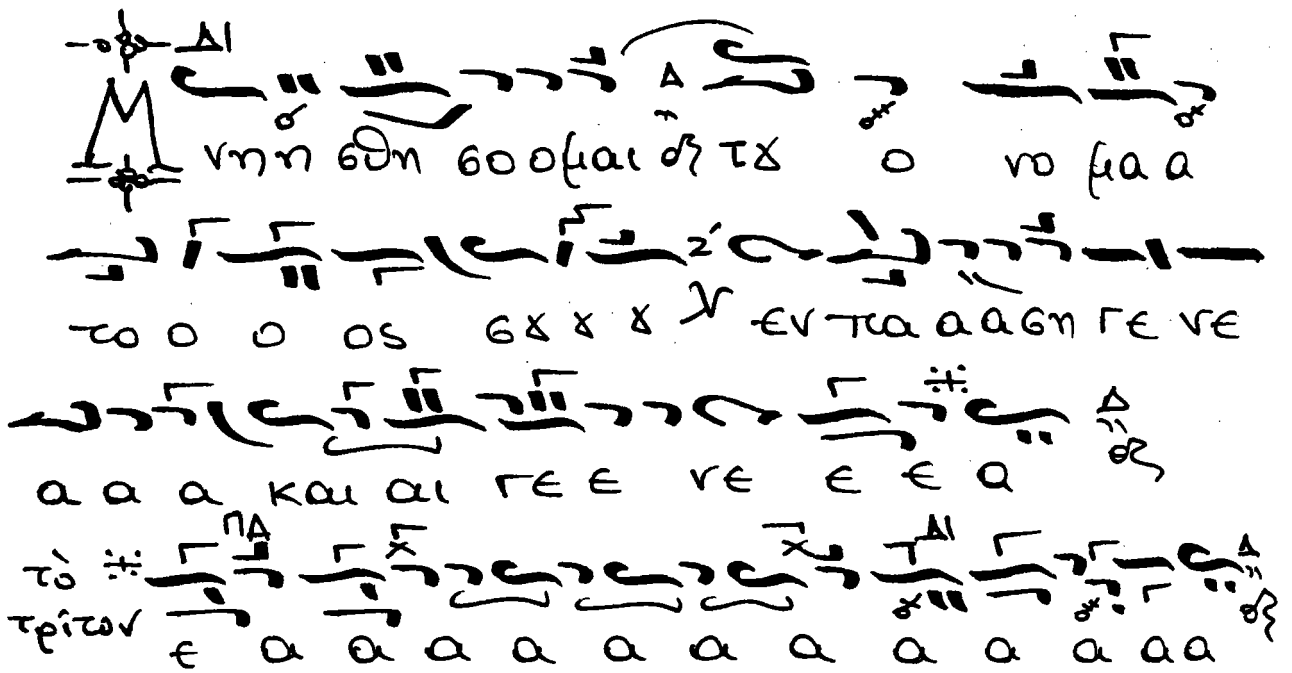 ΔΙ
Δ
Μνηη σθη σοομαι τȣ ο νο μαα
το ο ο ος σȣ ȣ ȣ εν πα α α ση γε νε
Δ
α α α και αι γε ε νε ε ε α
ΠΑ ΔΙ Δ
τὸ
τρίτον ε α α α α α α α α α α α α